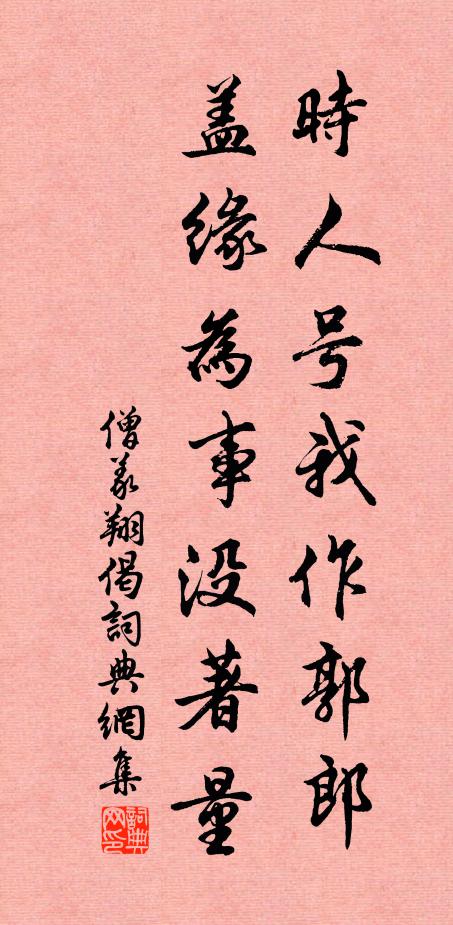 時人号我作郭郎
盖缘為事没著量
僧义翔偈詞典網集
詞典网印